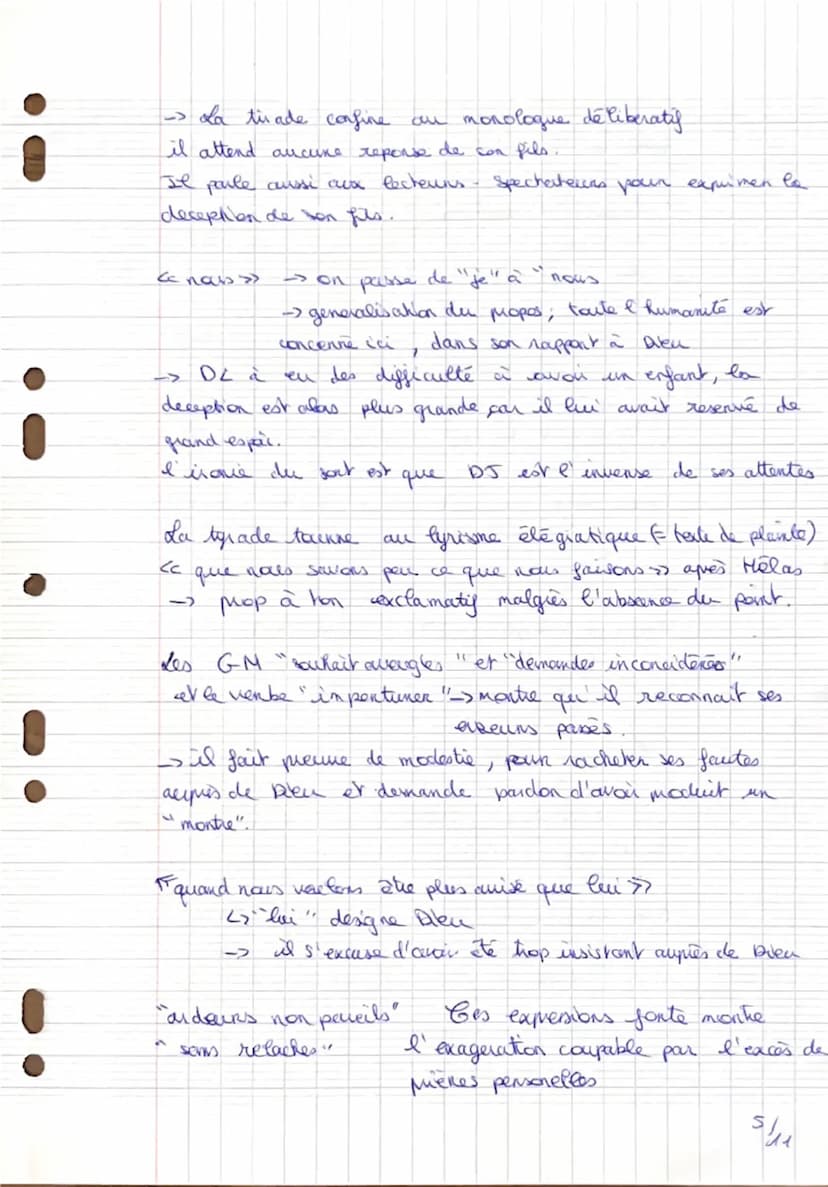 -> La tirade confine au monologue déliberatif
il attend aucune reponse de son fils.
Il parle aussi aux lecteurs - spectateurs pour exprimer la
deception de son fils.
<< nous >> -> on passe de "je" à "nous
-> generalisation du propos, toute l'humanité est
concerné ici, dans son rapport à Dieu
-> DL à eu des difficulté à avoir un enfant, la
deception est alors plus grande car il lui avait reservé de
grand espoir.
l'ironie du sort est que DJ est l'inverse de ses attentes
La tyrade tourne au lyrisme élégiatique (= texte de plainte)
<< que nous savons peu ce que nous faisons >> après Hélas
-> prop à ton exclamatif malgrès l'absence du point.
Les GM "souhait aveugles" et "demandes inconcidérées"
et le verbe "importuner" -> montre qu'il reconnait ses
erreurs passés.
-> il fait preuve de modestie, pour racheter ses fautes
auprès de Dieu et demande pardon d'avoir produit un
"montre".
<< quand nous voulons être plus avisé que lui >>
↳ "lui" designe Dieu
-> il s'excuse d'avoir été trop insistant auprès de Dieu
"ardeurs non pareils" Ces expressions fonte montre
" sans relaches" l'exageration coupable par l'excès de
prières personelles
5/11